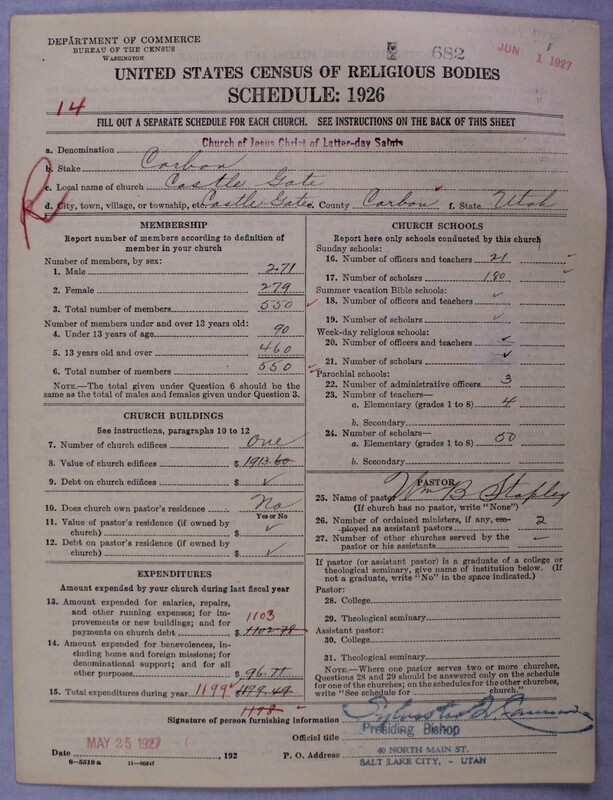 DEPARTMENT OF COMMERCE
BUREAU OF THE CENSUS
WASHINGTON
682
JUN 1 1927
UNITED STATES CENSUS OF RELIGIOUS BODIES
SCHEDULE: 1926
14
FILL OUT A SEPARATE SCHEDULE FOR EACH CHURCH. SEE INSTRUCTIONS ON THE BACK OF THIS SHEET
a. Denomination Church of Jesus Christ of Latter-day Saints
b. Stake Carbon
c. Local name of church Castle Gate
d. City, town, village, or township, etc. Castle Gate e. County Carbon f. State Utah
MEMBERSHIP
Report number of members according to definition of
member in your church
Number of members, by sex:
1. Male 271
2. Female 279
3. Total number of members 550
Number of members under and over 13 years old:
4. Under 13 years of age 90
5. 13 years old and over 460
6. Total number of members 550
NOTE.—The total given under Question 6 should be
same as the total of males and females given under Question 3.
CHURCH BUILDINGS
See instructions, paragraphs 10 to 12
7. Number of church edifices One
8. Value of church edifices $ 1913.60
9. Debt on church edifices $ ✓
10. Does church own pastor's residence No
Yes or No
11. Value of pastor's residence (if owned by
church) $ ✓
12. Debt on pastor's residence (if owned by
church) $ ✓
EXPENDITURES
Amount expended by your church during last fiscal year
13. Amount expended for salaries, repairs,
and other running expenses; for im-
provements or new buildings; and for 1103
payments on church debt $ 1102.78
14. Amount expended for benevolences,
including home and foreign missions; for
denominational support; and for all
other purposes $ 96.71
15. Total expenditures during year 1199 1199.49
1198
CHURCH SCHOOLS
Report here only schools conducted by this church
Sunday schools:
16. Number of officers and teachers 21
17. Number of scholars 180
Summer vacation Bible schools:
18. Number of officers and teachers ✓
19. Number of scholars ✓
Week-day religious schools:
20. Number of officers and teachers ✓
21. Number of scholars ✓
Parochial schools:
22. Number of administrative officers 3
23. Number of teachers—
a. Elementary (grades 1 to 8) 4
b. Secondary
24. Number of scholars—
a. Elementary (grades 1 to 8) 50
b. Secondary
PASTOR
25. Name of pastor Wm B Stapley
(If church has no pastor, write "None")
26. Number of ordained ministers, if any, em-
ployed as assistant pastors 2
27. Number of other churches served by the
pastor or his assistants —
If pastor (or assistant pastor) is a graduate of a college or
theological seminary, give name of institution below. (If
not a graduate, write "No" in the space indicated.)
Pastor:
28. College
29. Theological seminary
Assistant pastor:
30. College
31. Theological seminary
NOTE.—Where one pastor serves two or more churches,
Questions 28 and 29 should be answered only on the schedule
for one of the churches; on the schedules for the other churches,
write "See schedule for church."
Signature of person furnishing information
Official title Presiding Bishop
Date MAY 25 1927, 192 P. O. Address 40 NORTH MAIN ST.
SALT LAKE CITY, - UTAH
8-5518a